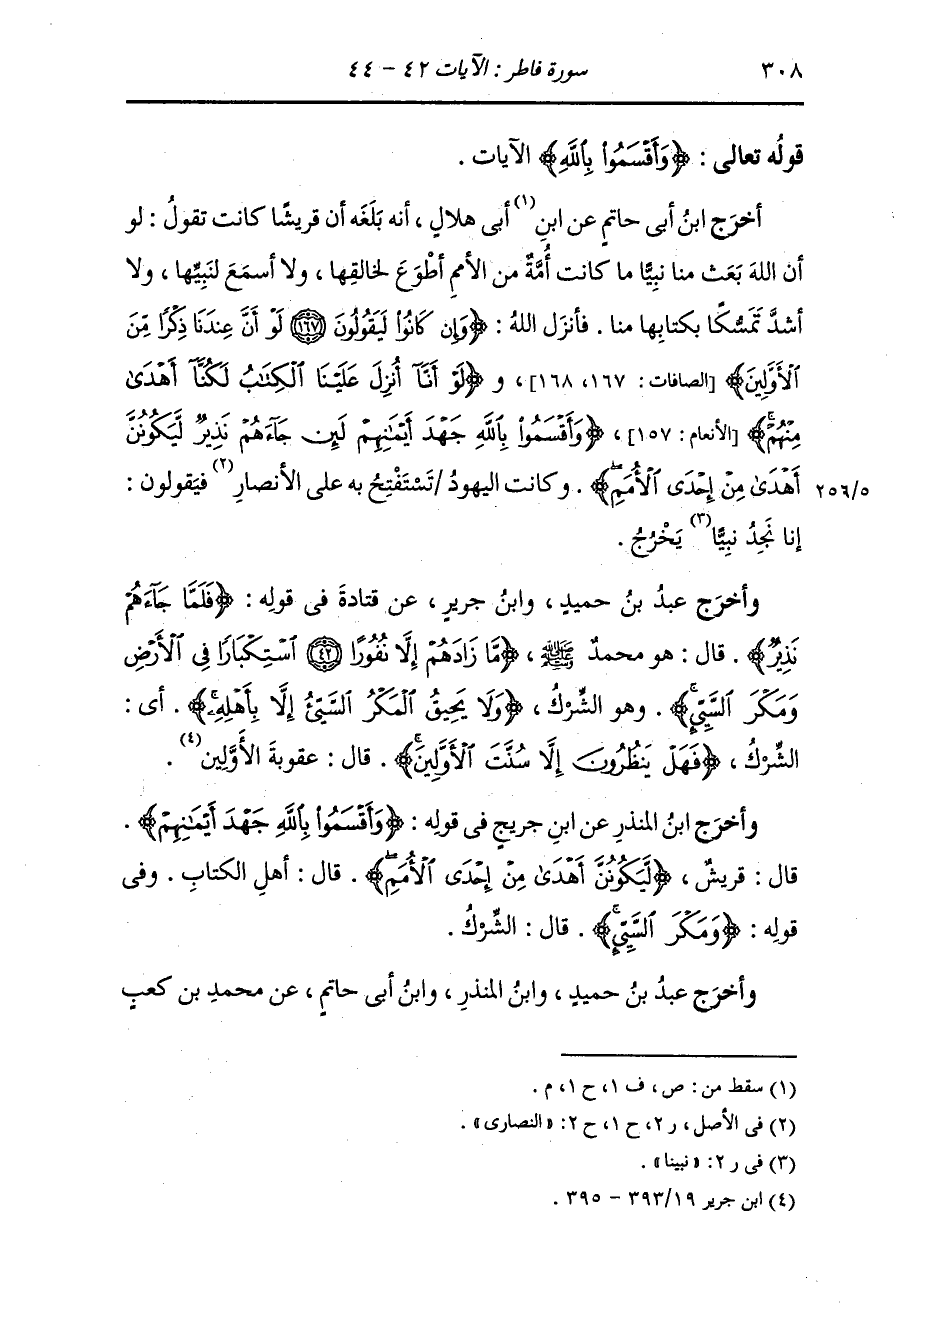 ٣٠٨ سورة فاطر : الآيات ٤٢ – ٤٤
قولُه تعالى : ﴿وَأَقْسَمُوا۟ بِٱللَّهِ﴾ الآيات .
أخرَج ابنُ أبى حاتمٍ عن ابنِ(١) أبى هلالٍ ، أنه بَلَغَه أن قريشًا كانت تقولُ : لو
أن اللهَ بَعَث منا نبِيًّا ما كانت أُمَّةٌ من الأممِ أطْوَعَ لخالقِها ، ولا أسمَعَ لنَبِيِّها ، ولا
أشدَّ تَمَسُّكًا بكتابِها منا . فأنزَل اللهُ : ﴿وَإِن كَانُوا۟ لَيَقُولُونَ ١٦٧ لَوْ أَنَّ عِندَنَا ذِكْرًا مِّنَ
ٱلْأَوَّلِينَ﴾ [الصافات : ١٦٧، ١٦٨] ، و ﴿لَوْ أَنَّآ أُنزِلَ عَلَيْنَا ٱلْكِتَٰبُ لَكُنَّآ أَهْدَىٰ
مِنْهُمْ ۚ﴾ [الأنعام : ١٥٧] ، ﴿وَأَقْسَمُوا۟ بِٱللَّهِ جَهْدَ أَيْمَٰنِهِمْ لَئِن جَآءَهُمْ نَذِيرٌ لَّيَكُونُنَّ
أَهْدَىٰ مِنْ إِحْدَى ٱلْأُمَمِ ۖ﴾ . وكانت اليهودُ /تَسْتَفْتِحُ به على الأنصارِ(٢) فيَقولون : ٢٥٦/٥
إنا نَجِدُ نبِيًّا(٣) يَخْرُجُ .
وأخرَج عبدُ بنُ حميدٍ ، وابنُ جريرٍ ، عن قتادةَ فى قولِه : ﴿فَلَمَّا جَآءَهُمْ
نَذِيرٌ﴾ . قال : هو محمدٌ ﷺ ، ﴿مَّا زَادَهُمْ إِلَّا نُفُورًا ٤٢ ٱسْتِكْبَارًا فِى ٱلْأَرْضِ
وَمَكْرَ ٱلسَّيِّئِ ۚ﴾ . وهو الشِّرْكُ ، ﴿وَلَا يَحِيقُ ٱلْمَكْرُ ٱلسَّيِّئُ إِلَّا بِأَهْلِهِۦ ۚ﴾ . أى :
الشِّرْكُ ، ﴿فَهَلْ يَنظُرُونَ إِلَّا سُنَّتَ ٱلْأَوَّلِينَ ۚ﴾ . قال : عقوبةَ الأوَّلِين(٤) .
وأخرَج ابنُ المنذرِ عن ابنِ جريجٍ فى قولِه : ﴿وَأَقْسَمُوا۟ بِٱللَّهِ جَهْدَ أَيْمَٰنِهِمْ﴾ .
قال : قريشٌ ، ﴿لَّيَكُونُنَّ أَهْدَىٰ مِنْ إِحْدَى ٱلْأُمَمِ ۖ﴾ . قال : أهلِ الكتابِ . وفى
قولِه : ﴿وَمَكْرَ ٱلسَّيِّئِ ۚ﴾ . قال : الشِّرْكُ .
وأخرَج عبدُ بنُ حميدٍ ، وابنُ المنذرِ ، وابنُ أبى حاتمٍ ، عن محمدِ بن كعبٍ
(١) سقط من : ص ، ف ١، ح ١، م .
(٢) فى الأصل ، ر ٢، ح ١، ح ٢: «النصارى» .
(٣) فى ر ٢: «نبينا» .
(٤) ابن جرير ٣٩٣/١٩ – ٣٩٥ .